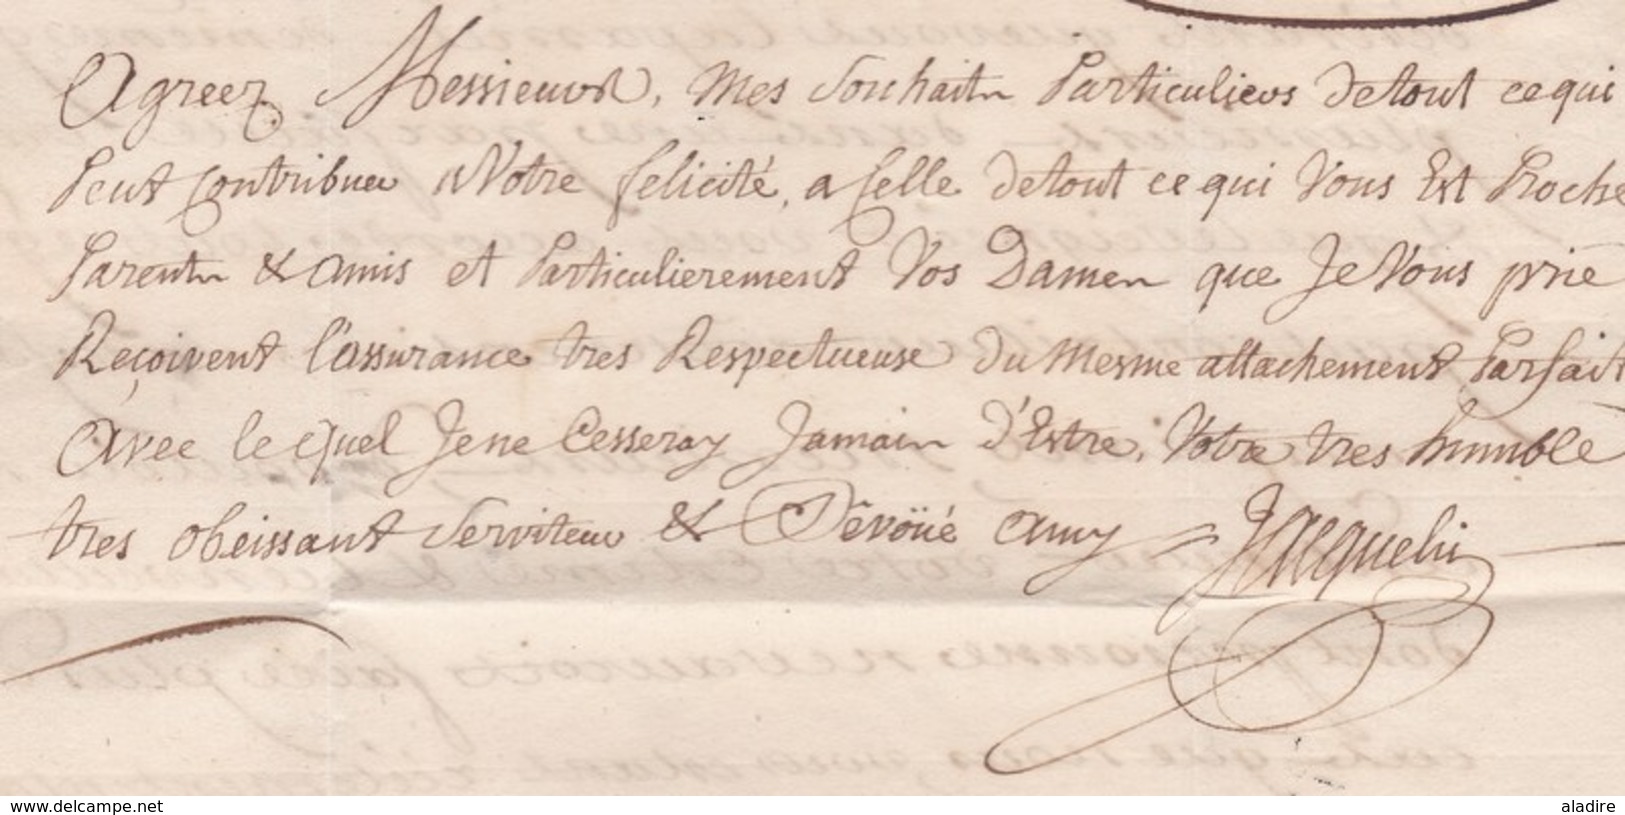 Agreez Messieurs, Mes Souhaits Particuliers De tout ce qui
Peut Contribuer a Votre felicité, a Celle De tout ce qui Vous Est Proche
Parents & amis et Particulierement Vos Dames que Je Vous prie
Reçoivent l'assurance tres Respectueuse Du Mesme attachement Parfait
Avec le quel Je ne Cesseray Jamais d'Estre, Votre tres humble
tres obeissant Serviteur & Dêvoüé amy = Jacquelin
www.delcampe.net
aladire